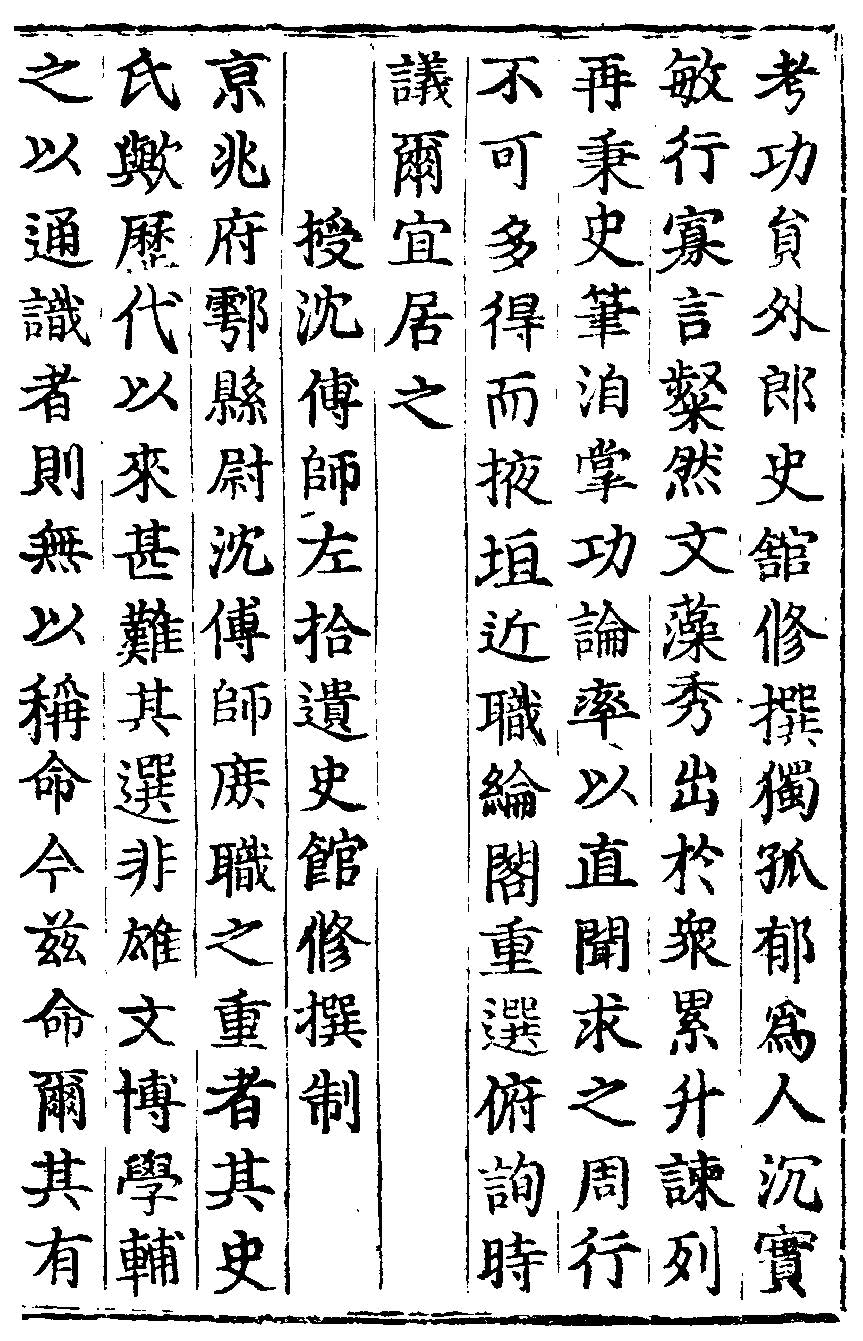 考功貟外郎史舘修撰獨孤郁爲人沉實
敏行寡言粲然文藻秀出於衆累升諫列
再秉史筆洎掌功論率以直聞求之周行
不可多得而掖垣近職綸閣重選俯詢時
議爾宜居之
授沈傅師左拾遺史館修撰制
京兆府鄠縣尉沈傅師庻職之重者其史
氏歟歷代以來甚難其選非雄文博學輔
之以通識者則無以稱命今兹命爾其有